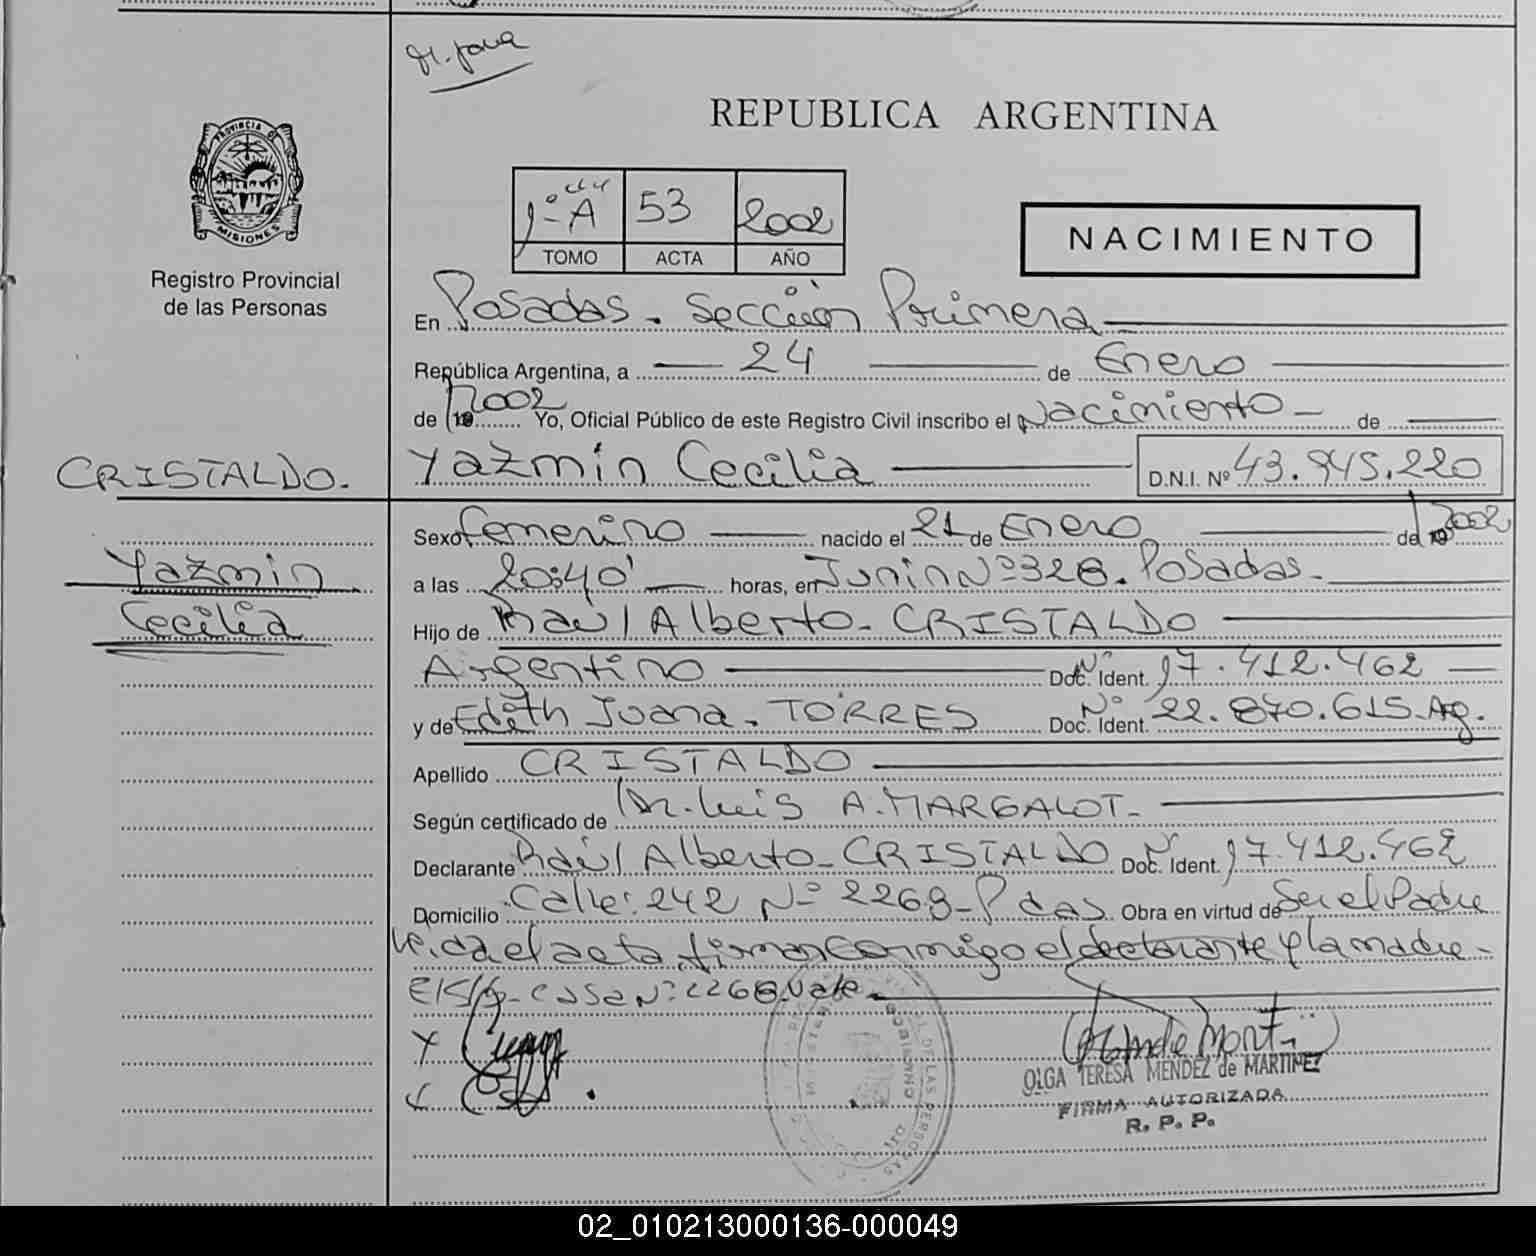 REPUBLICA ARGENTINA
PROVINCIA DE
MISIONES
Registro Provincial
de las Personas
1º A 53 2002
TOMO ACTA AÑO
NACIMIENTO
En Posadas. Sección Primera
República Argentina, a 24 de Enero
de 2002 Yo, Oficial Público de este Registro Civil inscribo el Nacimiento de
CRISTALDO.
Yazmín Cecilia D.N.I. Nº 43.945.220
Yazmin
Cecilia
Sexo femenino nacido el 21 de Enero de 2002
a las 20:40' horas, en Junin Nº 328. Posadas.
Hijo de Raúl Alberto CRISTALDO
Argentino Doc. Ident. Nº 17.412.462
y de Edith Juana. TORRES Doc. Ident. Nº 22.870.615. Ag.
Apellido CRISTALDO
Según certificado de Dr. Luis A. MARGALOT.
Declarante Raúl Alberto CRISTALDO Doc. Ident. Nº 17.412.462
Domicilio Calle: 242 Nº 2268 - Pdas. Obra en virtud de Ser el Padre
Leida el acta, firman conmigo el declarante y la madre -
casa Nº 2268. Vale
OLGA TERESA MENDEZ de MARTINEZ
FIRMA AUTORIZADA
R. P. P.
02_010213000136-000049